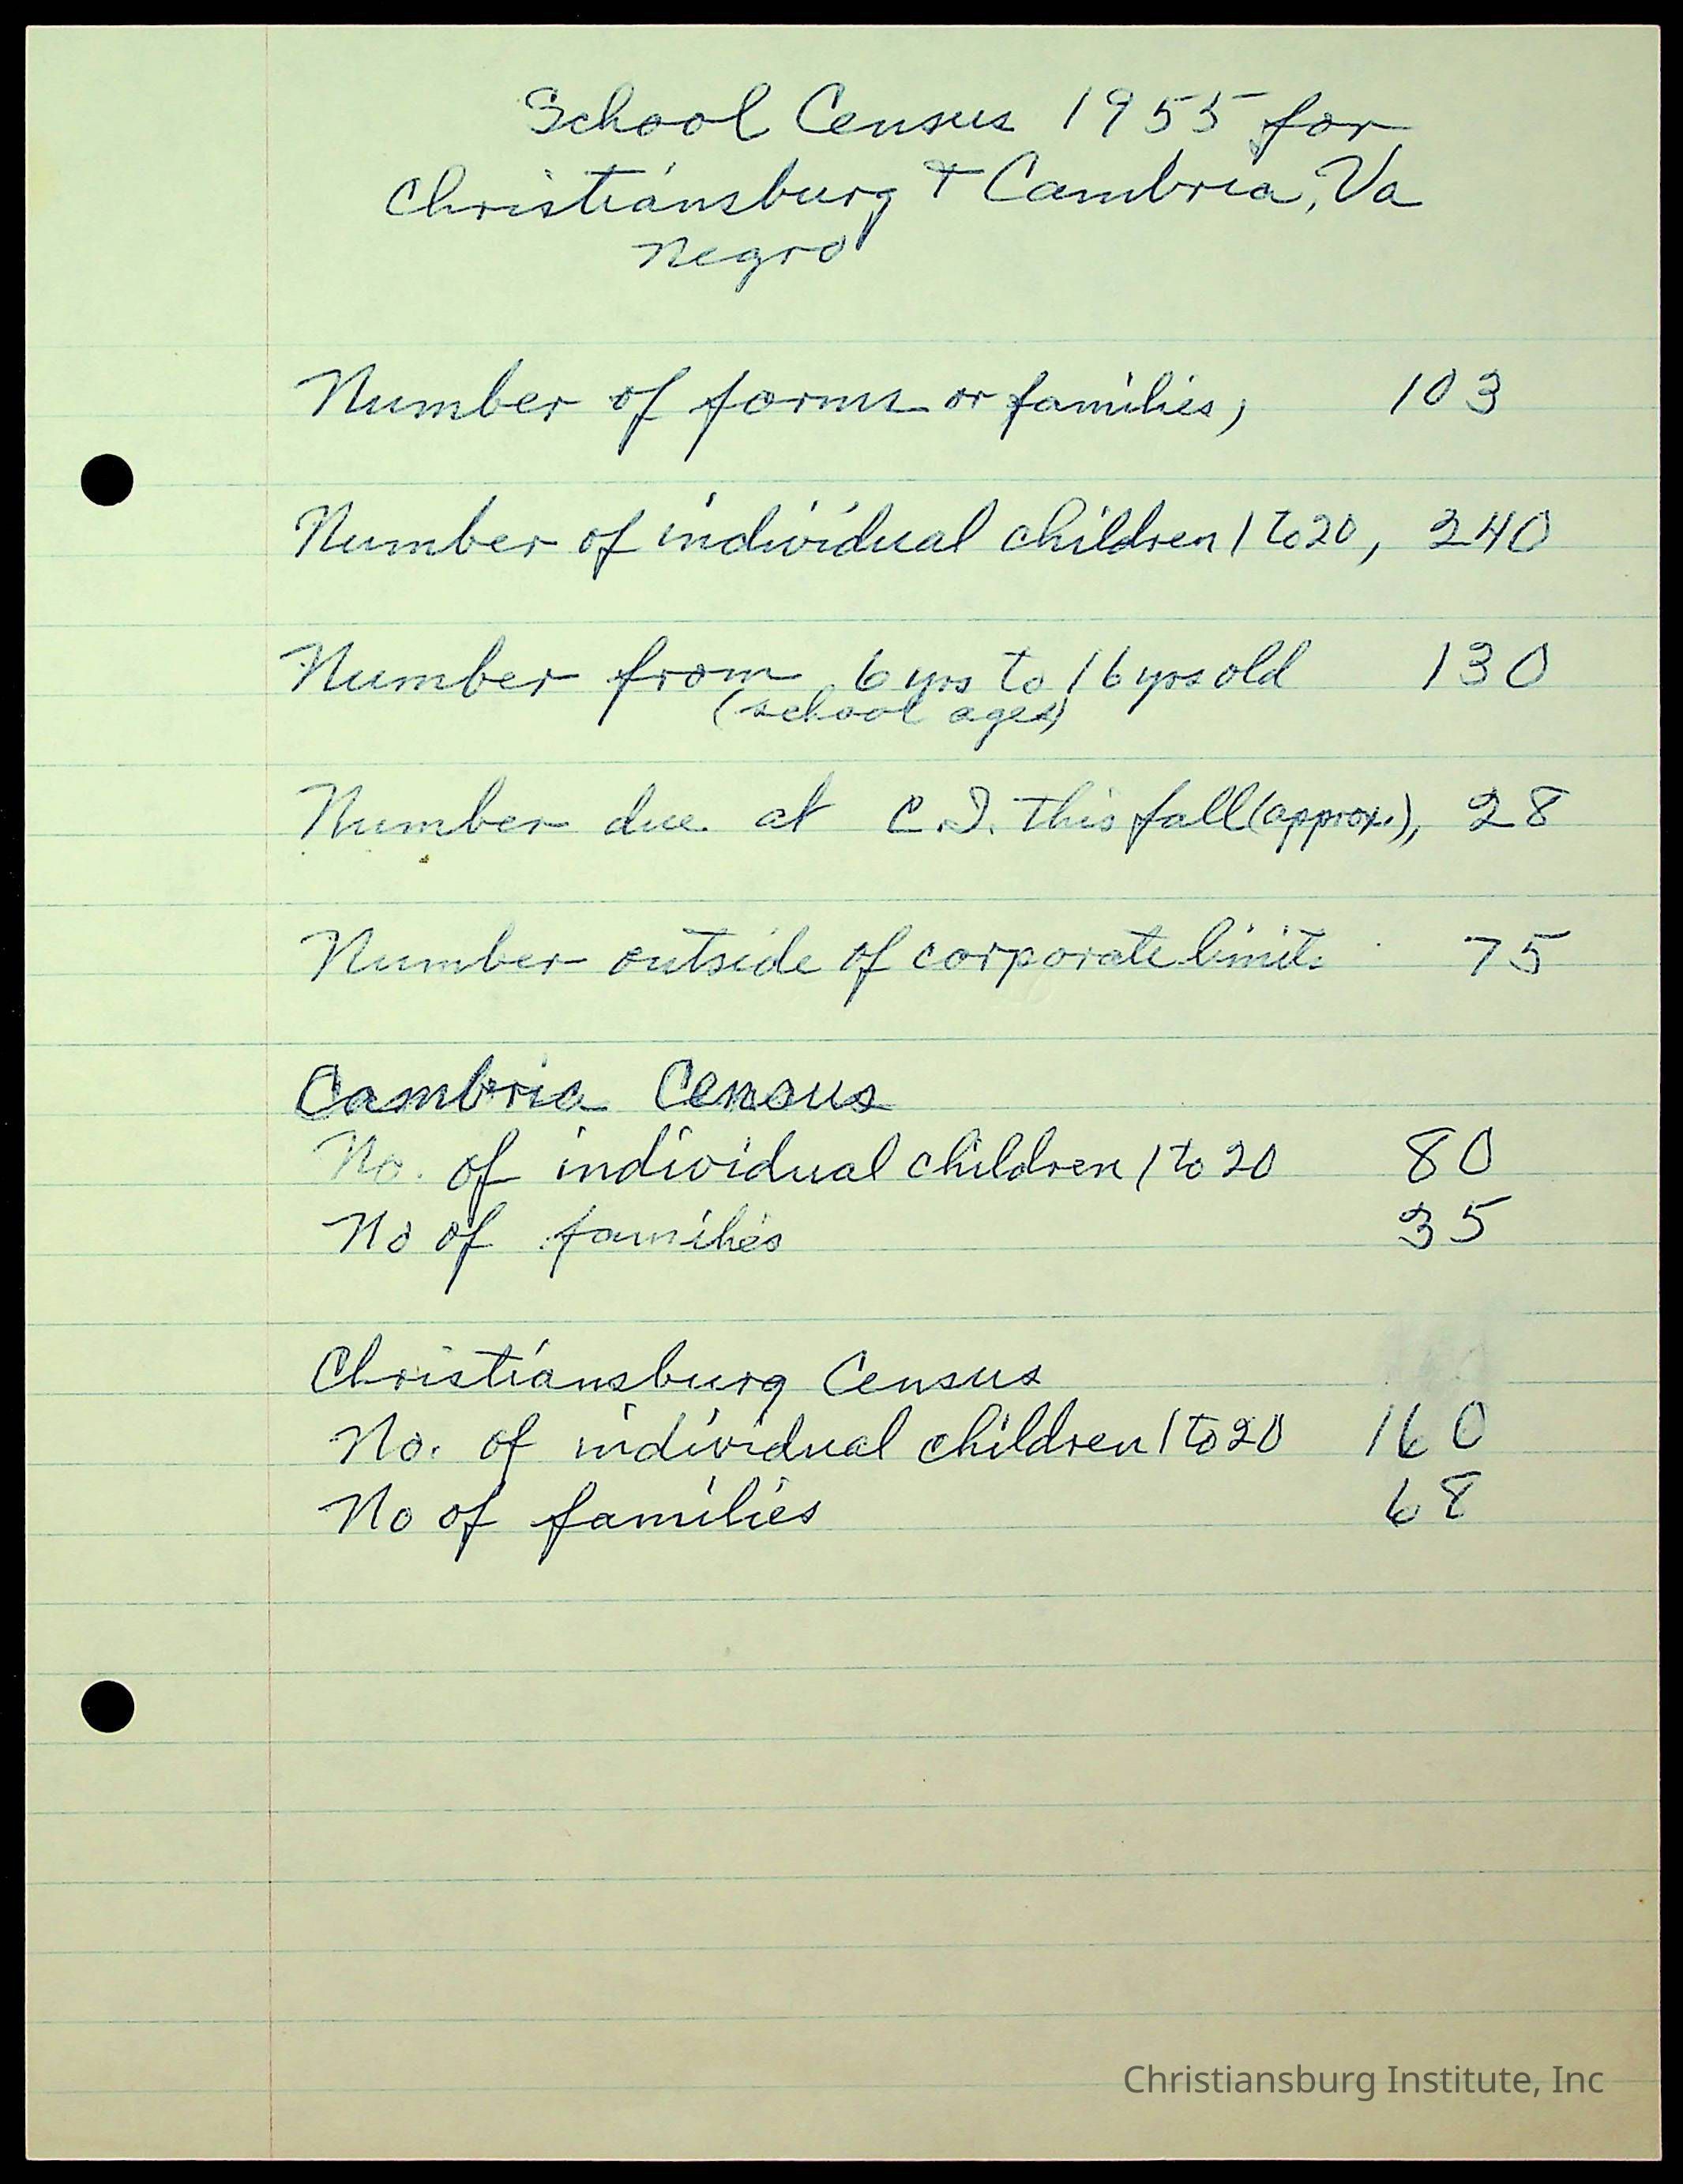 School Census 1955 for
Christiansburg & Cambria, Va
Negro
Number of forms or families, 103
Number of individual children 1 to 20, 240
Number from 6 yrs to 16 yrs old 130
(school ages)
Number due at C.I. this fall (approx.), 28
Number outside of corporate limits 75
Cambria Census
No. of individual children 1 to 20 80
No of families 35
Christiansburg Census
No. of individual children 1 to 20 160
No of families 68
Christiansburg Institute, Inc